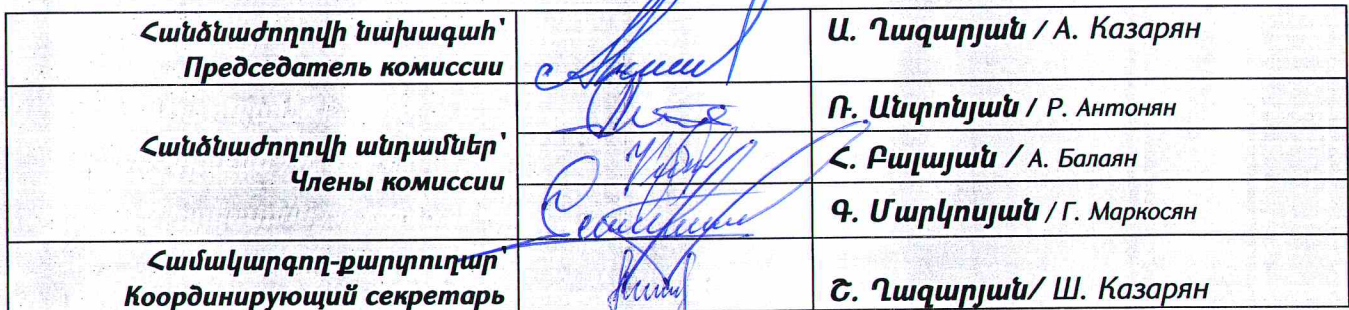 Հանձնաժողովի նախագահ՝
Председатель комиссии
Ա. Ղազարյան / А. Казарян
Հանձնաժողովի անդամներ՝
Члены комиссии
Ռ. Անտոնյան / Р. Антонян
Հ. Բալայան / А. Балаян
Գ. Մարկոսյան / Г. Маркосян
Համակարգող-քարտուղար՝
Координирующий секретарь
Շ. Ղազարյան/ Ш. Казарян